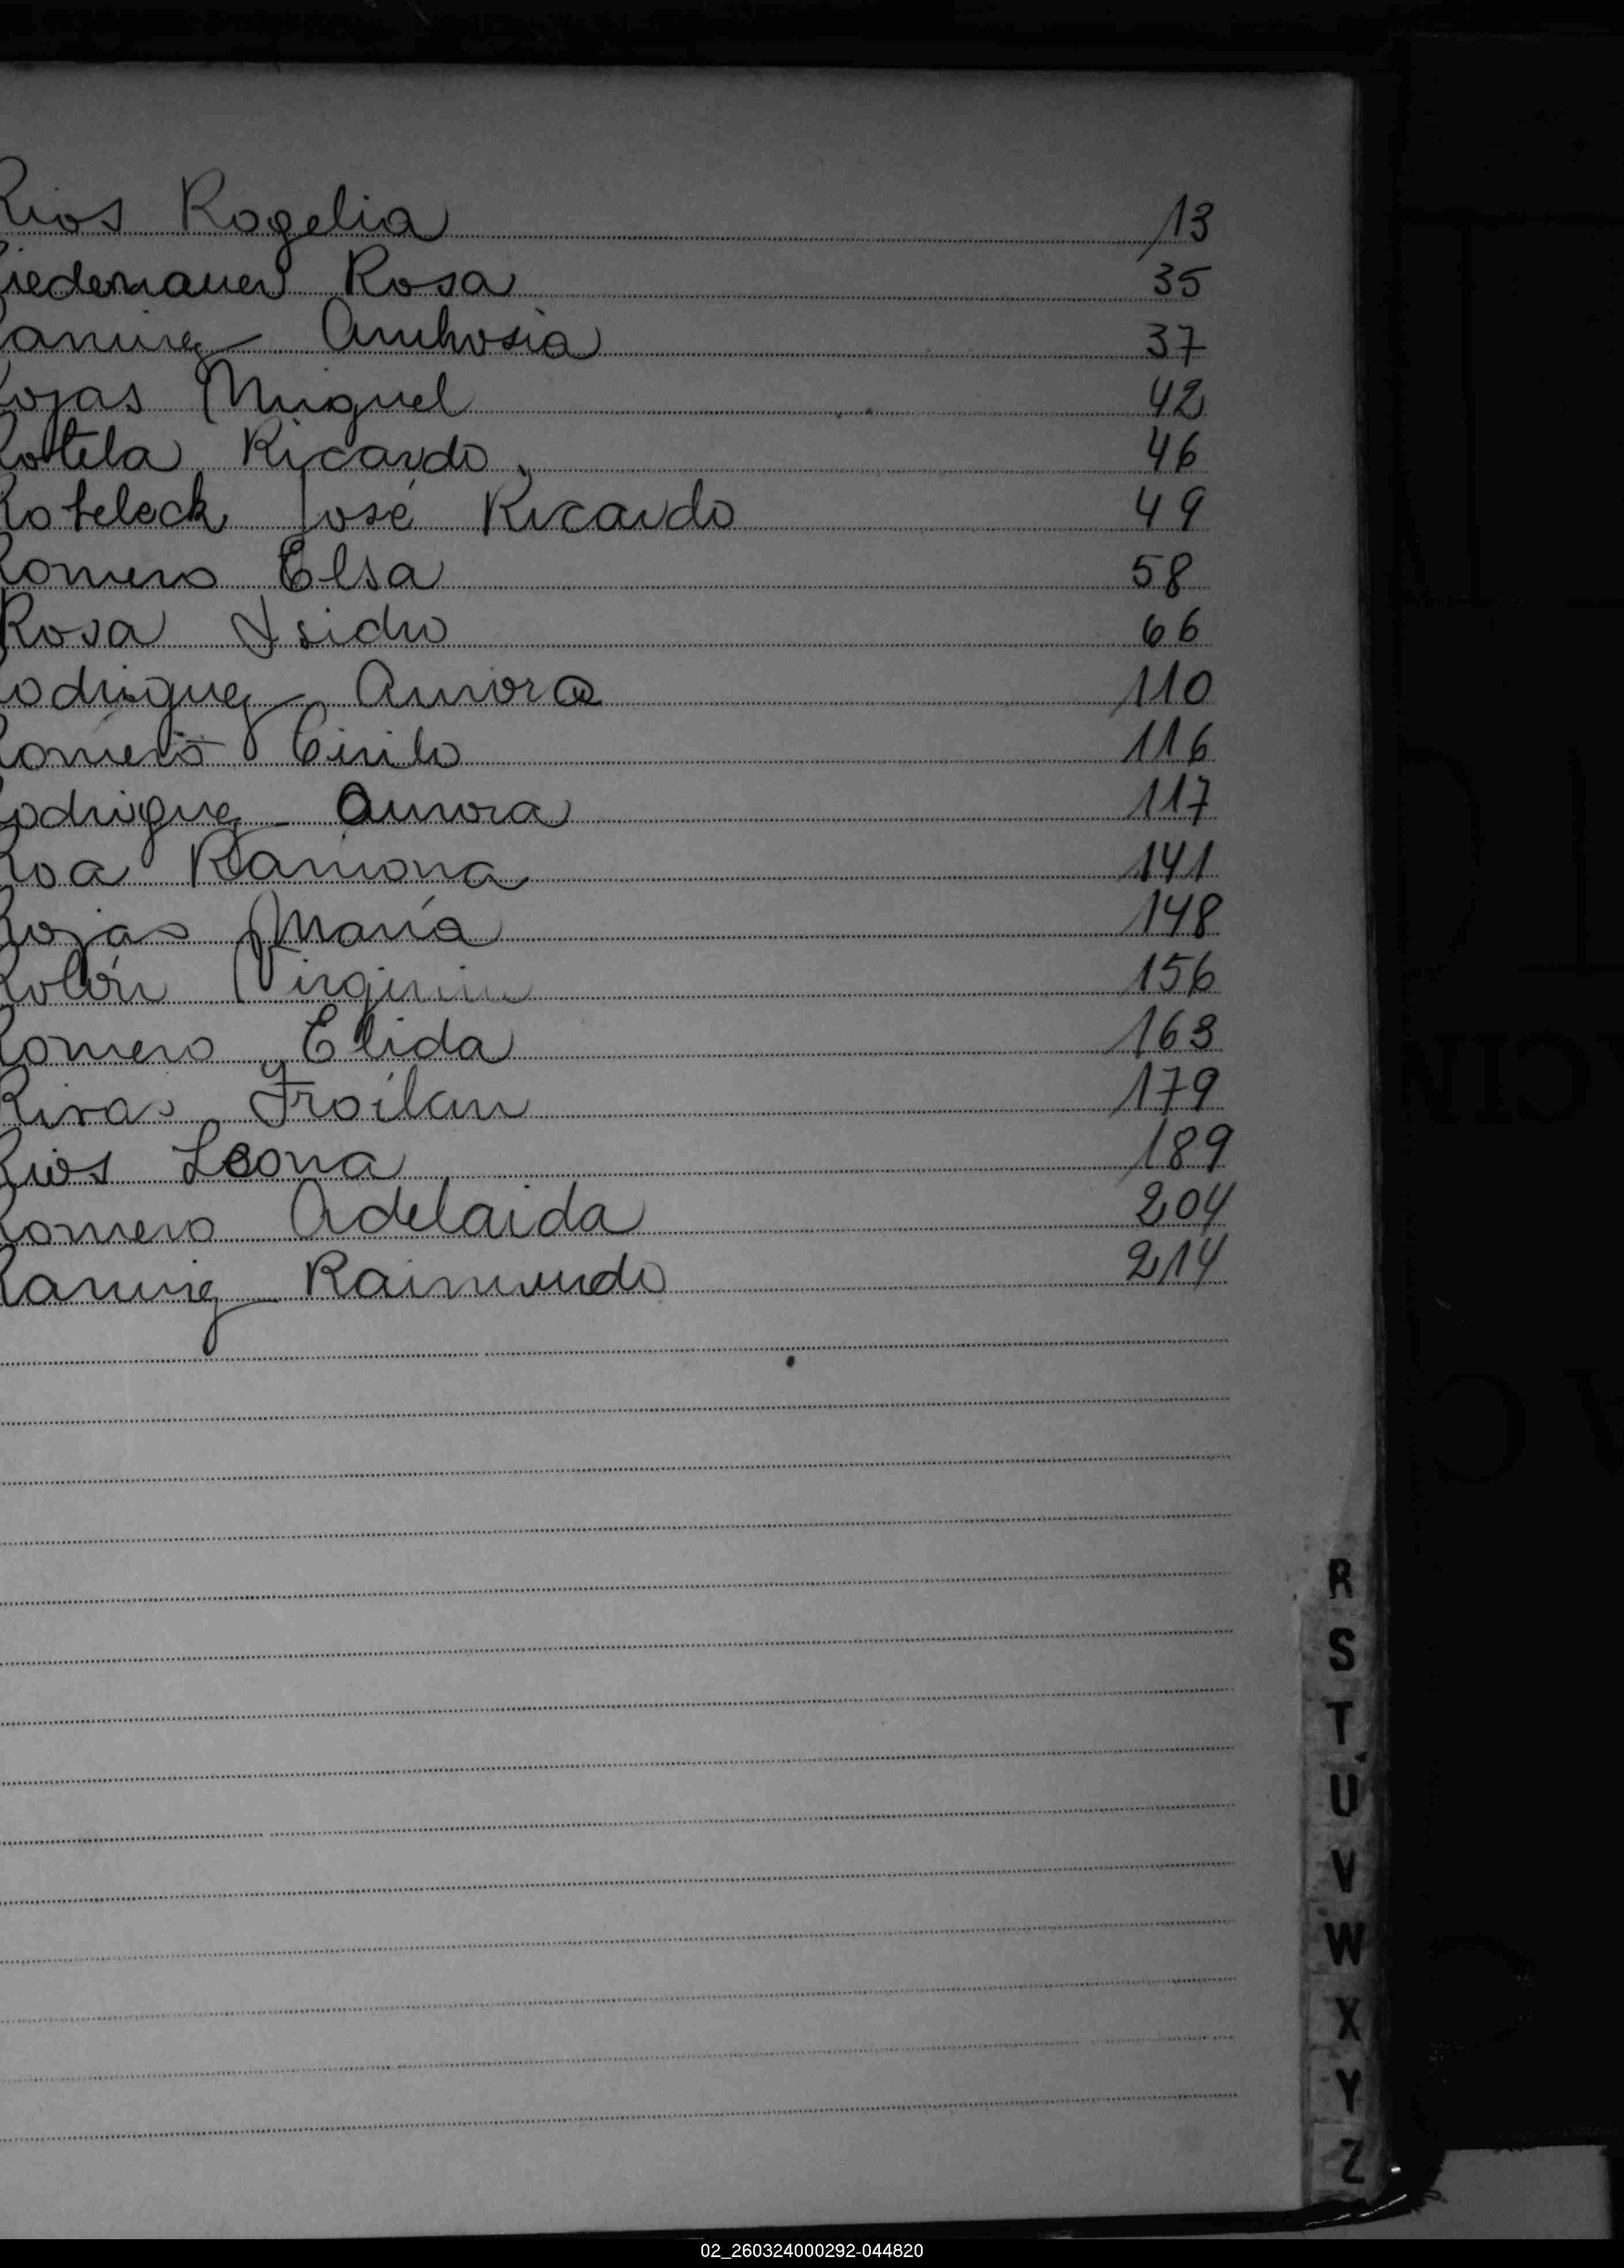 Rios Rogelia 13
Riedemauer Rosa 35
Ramirez Ambrosia 37
Rojas Miguel 42
Rotela Ricardo. 46
Roteleck José Ricardo 49
Romero Elsa 58
Rosa Isidro 66
Rodriguez Aurora 110
Romero Cirilo 116
Rodriguez Aurora 117
Roa Ramona 141
Rojas María 148
Rolón Virginia 156
Romero Elida 163
Rivas Froilan 179
Rios Leona 189
Romero Adelaida 204
Ramirez Raimundo 214
R
S
T
U
V
W
X
Y
Z
02_260324000292-044820